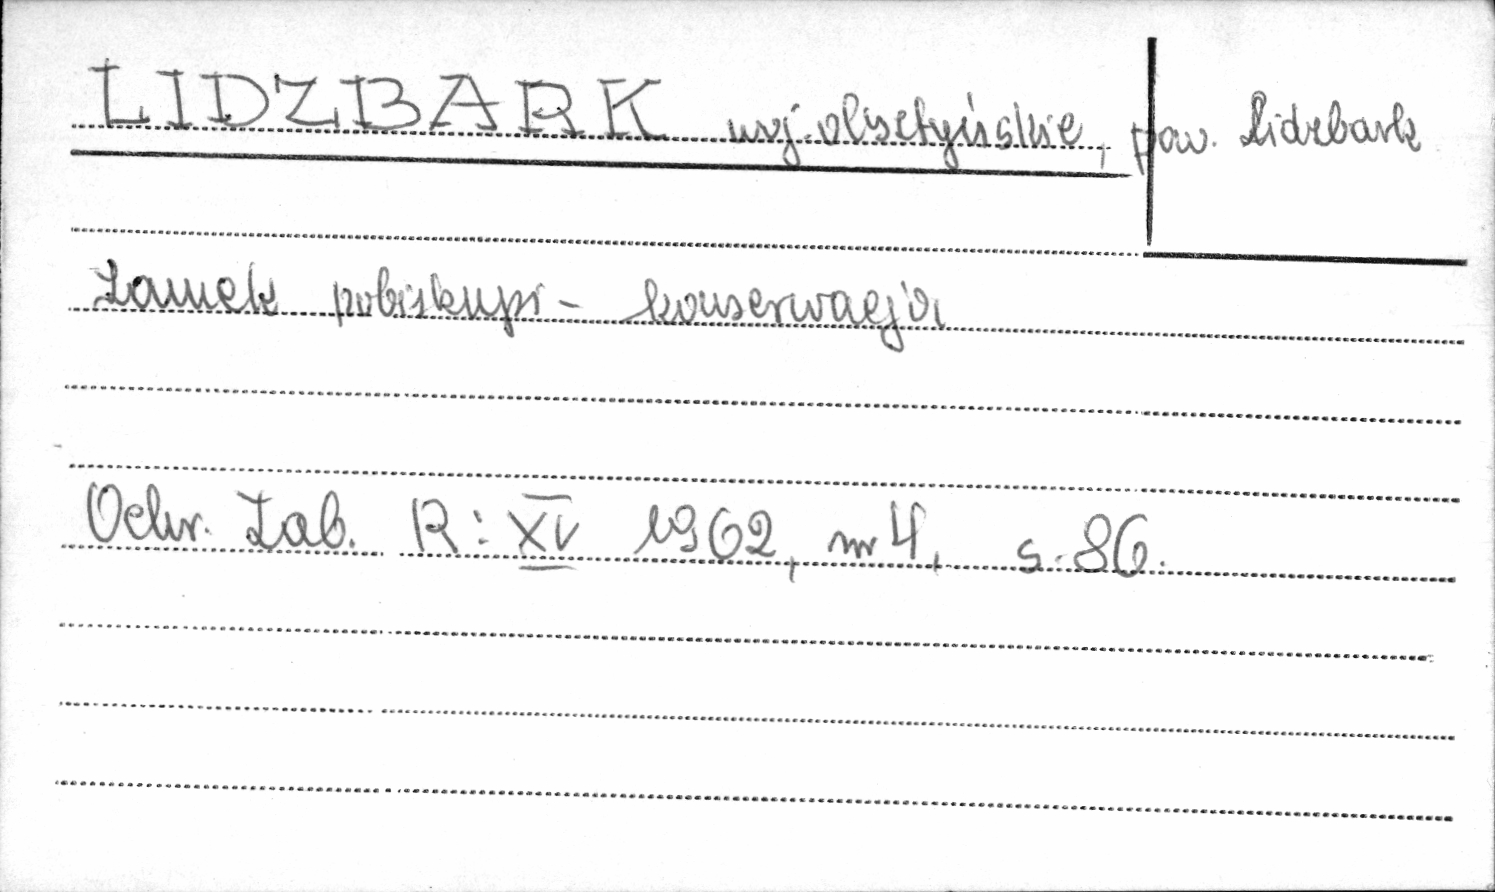 LIDZBARK woj. olsztyńskie, pow. Lidzbark
Zamek pobiskupi - konserwacja
Ochr. Zab. R: XV 1962, nr 4, s. 86.